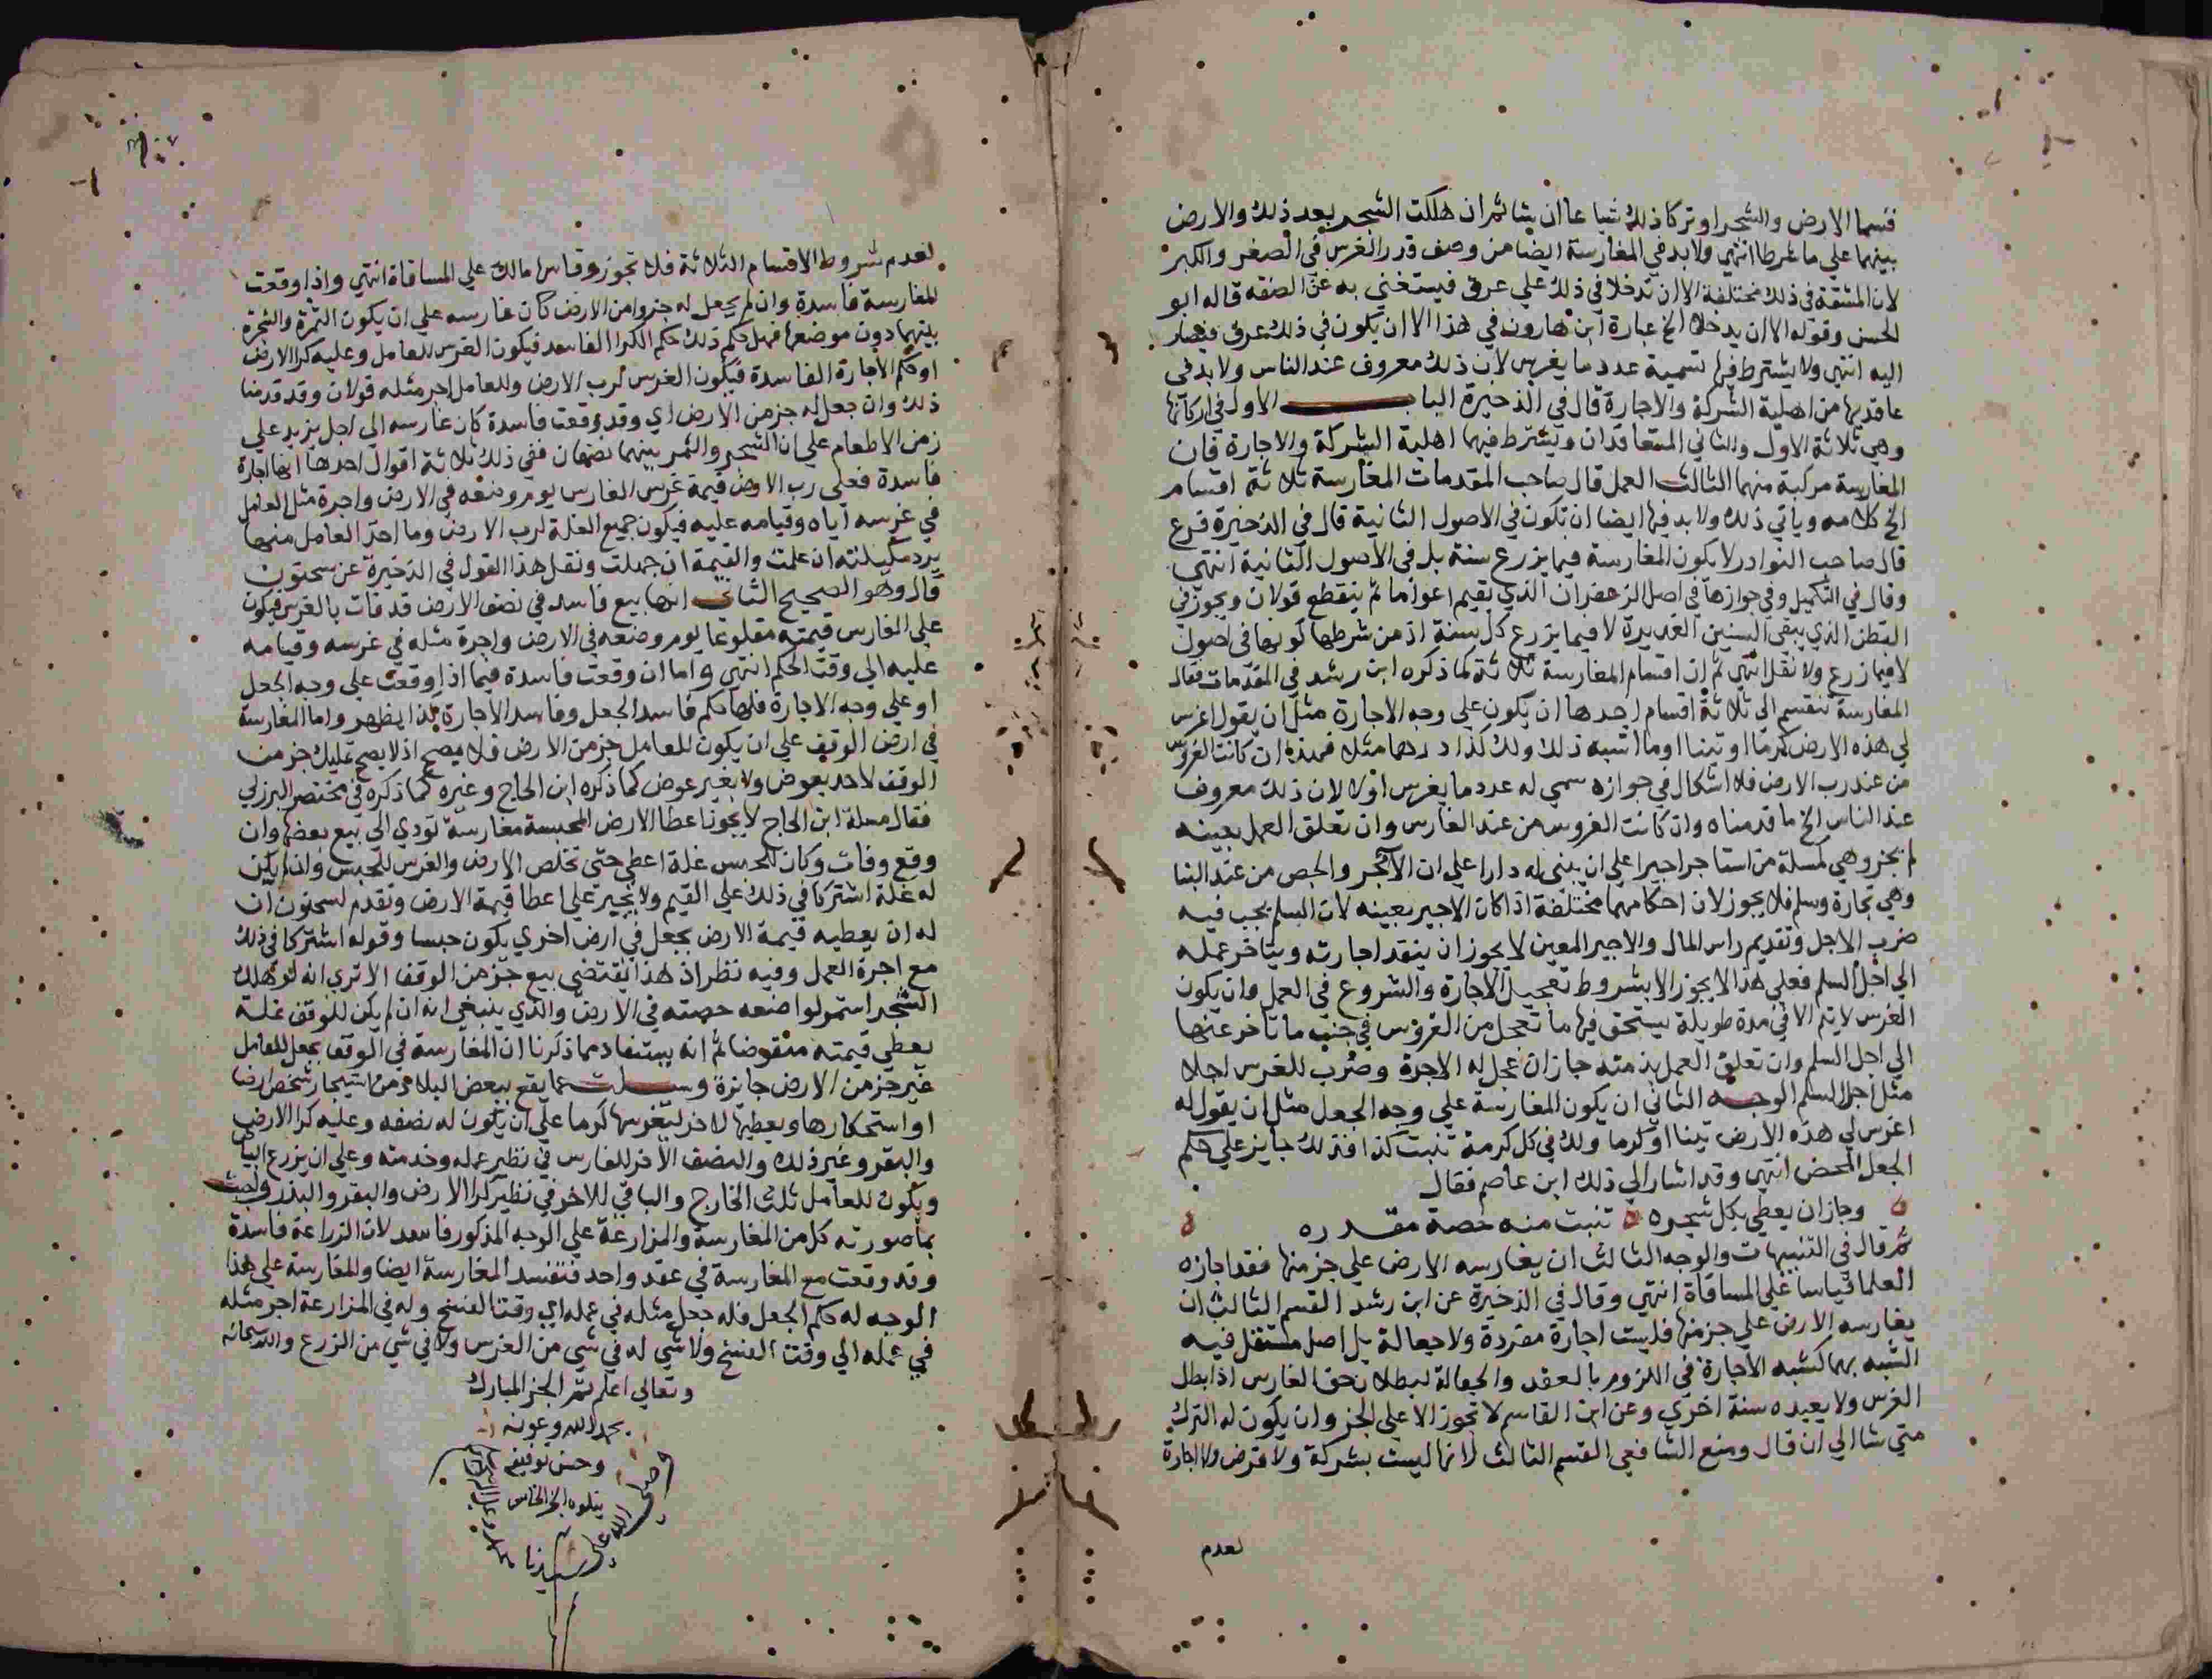 قسما الارض والشجر او تركا ذلك شياعا ان شا ثم ان هلكت الشجر بعد ذلك والارض
بينهما علي ما شرطا انتهي ولا بد في المغارسة ايضا من وصف قدر الغرس في الصغر والكبر
لان المشقة في ذلك مختلفة الا ان تدخلا في ذلك علي عرف فيستغني به عن الصفه قاله ابو
الحسن وقوله الا ان يدخلا الخ عبارة ابن هارون في هذا الا ان يكون في ذلك عرف فيصار
اليه انتهي ولا يشترط فيها تسمية عدد ما يغرس لان ذلك معروف عند الناس ولا بد في
عاقديها من اهلية الشركة والاجارة قال في الذخيرة الباب الاول في اركانها
وهي ثلاثة الاول والثاني المتعاقدان ويشترط فيهما اهلية الشركة والاجارة فان
المغارسة مركبة منهما الثالث العمل قال صاحب المقدمات المغارسة ثلاثة اقسام
الخ كلامه وياتي ذلك ولا بد فيها ايضا ان تكون في الاصول الثانية قال في الذخيرة فرع
قال صاحب النوادر لا يكون المغارسة فيما يزرع سنة بل في الاصول الثانية انتهي
وقال في التكميل وفي جوازها في اصل الزعفران الذي يقيم اعواما ثم ينقطع قولان ويجوز في
القطن الذي يبقي السنين العديدة لا فيما يزرع كل سنة اذ من شرطها كونها في اصول
لا فيما زرع ولا نقل انتهي ثم ان اقسام المغارسة ثلاثة كما ذكره ابن رشد في المقدمات فقال
المغارسة تنقسم الي ثلاثة اقسام احدها ان يكون علي وجه الاجارة مثل ان يقول اغرس
لي هذه الارض كرما او تينا او ما اشبه ذلك ولك كذا درهما مثلا فهذه ان كانت الغروس
من عند رب الارض فلا اشكال في جوازه سمي له عدد ما يغرس اولا لان ذلك معروف
عند الناس الخ ما قدمناه وان كانت الغروس من عند الغارس وان تعلق العمل بعينه
لم يجز وهي كمسلة من استاجر اجيرا علي ان يبني له دارا علي ان الآجر والجص من عند البنا
وهي تجارة وسلم فلا يجوز لان احكامهما مختلفة اذا كان الاجير بعينه لان السلم يجب فيه
ضرب الاجل وتقديم راس المال والاجير المعين لا يجوز ان ينقد اجارته ويتاخر عمله
الي اجل السلم فعلي هذا لا يجوز الا بشروط تعجيل الاجارة والشروع في العمل وان يكون
الغرس لا يتم الا في مدة طويلة يستحق فيها ما تعجل من الغروس في جنب ما تاخر عنها
الي اجل السلم وان تعلق العمل بذمته جاز ان عجل له الاجرة وضرب للغرس اجلا
مثل اجل السلم الوجه الثاني ان يكون المغارسة علي وجه الجعل مثل ان يقول له
اغرس لي هذه الارض تينا او كرما ولك في كل كرمة تنبت كذا فذلك جايز علي حكم
الجعل المحض انتهي وقد اشار الي ذلك ابن عاصم فقال
وجاز ان يعطي بكل شجره تنبت منه حصة مقدره
ثم قال في التنبيهات والوجه الثالث ان يغارسه الارض علي جز منها فقد اجازه
العلما قياسا علي المساقاة انتهي وقال في الذخيرة عن ابن رشد القسم الثالث ان
يغارسه الارض علي جز منها فليست اجارة مفردة ولا جعالة بل اصل مستقل فيه
الشبه بهما كشبه الاجارة في اللزوم بالعقد والجعالة لبطلان حق الغارس اذا بطل
الغرس ولا يعيده سنة اخري وعن ابن القاسم لا تجوز الا علي الجز وان يكون له الترك
متي شا الي ان قال ومنع الشافعي القسم الثالث لانها ليست بشركة ولا قرض ولا اجارة
لعدم
لعدم شروط الاقسام الثلاثة فلا تجوز وقاسها مالك علي المساقاة انتهي واذا وقعت
المغارسة فاسدة وان لم يجعل له جزوا من الارض كان غارسه علي ان يكون الثمرة والشجرة
بينهما دون موضعها فهل حكم ذلك حكم الكرا الفاسد فيكون الغرس للعامل وعليه كرا الارض
او حكم الاجارة الفاسدة فيكون الغرس لرب الارض وللعامل اجر مثله قولان وقد قدمنا
ذلك وان جعل له جز من الارض اي وقد وقعت فاسدة كان غارسه الي اجل يزيد علي
زمن الاطعام علي ان الشجر والثمر بينهما نصفان ففي ذلك ثلاثة اقوال احدها انها اجارة
فاسدة فعلي رب الارض قيمة غرس الغارس يوم وضعه في الارض واجرة مثل العامل
في غرسه اياه وقيامه عليه فيكون جميع الغلة لرب الارض وما اخذ العامل منها
يرد مكيلته ان علمت والقيمة ان جهلت ونقل هذا القول في الذخيرة عن سحنون
قال وهو الصحيح الثاني انها بيع فاسد في نصف الارض قد فات بالغرس فيكون
علي الغارس قيمته مقلوعا يوم وضعه في الارض واجرة مثله في غرسه وقيامه
عليه الي وقت الحكم انتهي واما ان وقعت فاسدة فيما اذا وقعت علي وجه الجعل
او علي وجه الاجارة فلها حكم فاسد الجعل وفاسد الاجارة كذا يظهر واما المغارسة
في ارض الوقف علي ان يكون للعامل جز من الارض فلا يصح اذ لا يصح تمليك جز من
الوقف لاحد بعوض ولا بغير عوض كما ذكره ابن الحاج وغيره كما ذكره في مختصر البرزلي
فقال مسلة ابن الحاج لا يجوز اعطا الارض المحبسة مغارسة لودي الي بيع بعضها وان
وقع وفات وكان للحبس غلة اعطي حتي تخلص الارض والغرس للحبس وان لم يكن
له غلة اشتركا في ذلك علي القيم ولا يجبر علي اعطا قيمة الارض وتقدم لسحنون ان
له ان يعطيه قيمة الارض يجعل في ارض اخري يكون حبسا وقوله اشتركا في ذلك
مع اجرة العمل وفيه نظر اذ هذا يقتضي بيع جز من الوقف الا تري انه لو هلك
الشجر استمر لواضعه حصته في الارض والذي ينبغي انه ان لم يكن للوقف غلة
يعطي قيمته منقوضا ثم انه يستفاد مما ذكرنا ان المغارسة في الوقف بجعل للعامل
غير جز من الارض جايزة وسئلت عما يقع ببعض البلاد من استيجار شخص ارضا
او استحكارها ويعطيها لاخر ليغرسها كرما علي ان يكون له نصفه وعليه كرا الارض
والبقر وغير ذلك والنصف الاخر للغارس في نظير عمله وخدمته وعلي ان يزرع البياض
ويكون للعامل ثلث الخارج والباقي للاخر في نظير كرا الارض والبقر والبذر واجبت
بما صورته كل من المغارسة والمزارعة علي الوجه المذكور فاسد لان الزراعة فاسدة
وقد وقعت مع المغارسة في عقد واحد فتفسد المغارسة ايضا والمغارسة علي هذا
الوجه له حكم الجعل فله جعل مثله في عمله اي وقت الفسخ وله في المزارعة اجر مثله
في عمله الي وقت الفسخ ولا شي له في شي من الغرس ولا في شي من الزرع والله سبحانه
وتعالي اعلم تم الجز المبارك
بحمد الله وعونه
وحسن توفيقه
يتلوه الجز الخامس
وصلي الله علي سيدنا